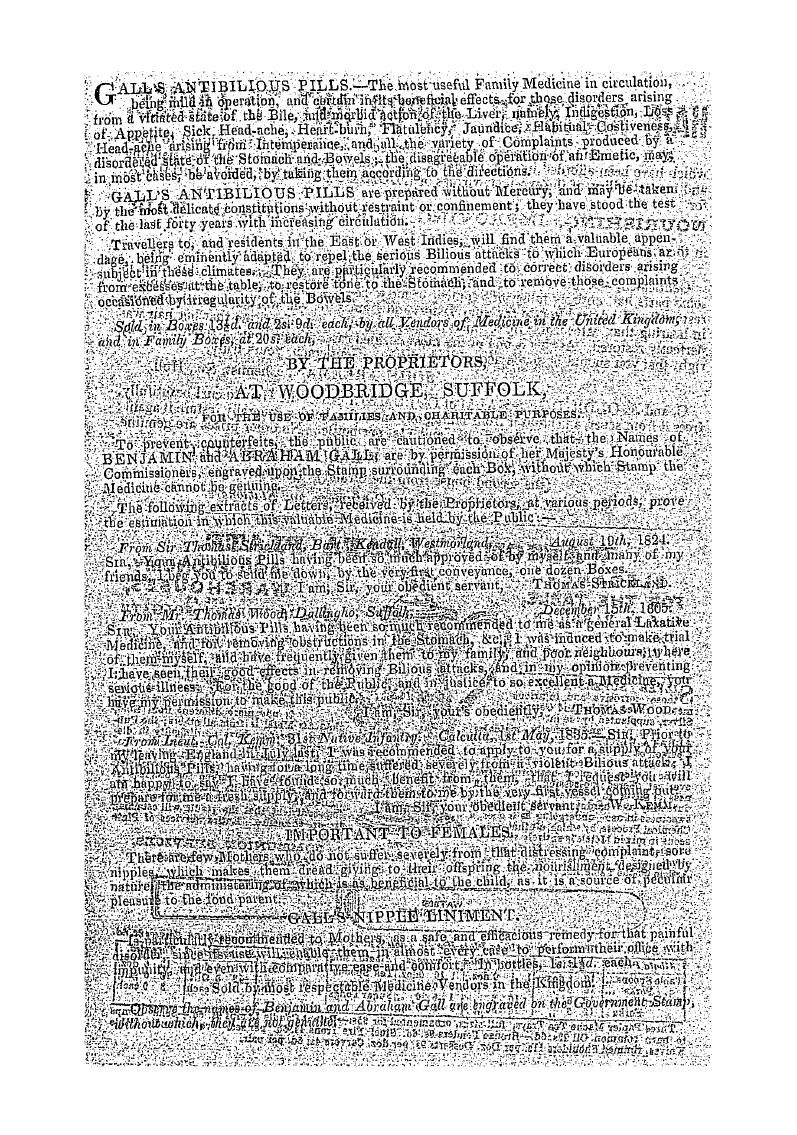 GALL'S ANTIBILIOUS PILLS.—The most useful Family Medicine in circulation,
being mild in operation, and certain in its beneficial effects, for those disorders arising
from a vitiated state of the Bile, and morbid action of the Liver, namely, Indigestion, Loss
of Appetite, Sick Head-ache, Heart-burn, Flatulency, Jaundice, Habitual Costiveness,
Head-ache arising from Intemperance, and all the variety of Complaints produced by a
disordered state of the Stomach and Bowels; the disagreeable operation of an Emetic, may,
in most cases, be avoided, by taking them according to the directions.
GALL'S ANTIBILIOUS PILLS are prepared without Mercury, and may be taken
by the most delicate constitutions without restraint or confinement; they have stood the test
of the last forty years with increasing circulation.
Travellers to, and residents in the East or West Indies, will find them a valuable appen-
dage, being eminently adapted to repel the serious Bilious attacks to which Europeans are
subject in these climates. They are particularly recommended to correct disorders arising
from excesses at the table, to restore tone to the Stomach, and to remove those complaints
occasioned by irregularity of the Bowels.
Sold in Boxes 13½d. and 2s. 9d. each, by all Vendors of Medicine in the United Kingdom,
and in Family Boxes, at 20s. each,
BY THE PROPRIETORS,
AT WOODBRIDGE, SUFFOLK,
FOR THE USE OF FAMILIES AND CHARITABLE PURPOSES.
To prevent counterfeits, the public are cautioned to observe that the Names of
BENJAMIN and ABRAHAM GALL, are by permission of her Majesty's Honourable
Commissioners, engraved upon the Stamp surrounding each Box, without which Stamp the
Medicine cannot be genuine.
The following extracts of Letters, received by the Proprietors, at various periods, prove
the estimation in which this valuable Medicine is held by the Public:—
From Sir Thomas Strickland, Bart. Kendall, Westmorland, August 19th, 1824.
Sir,—Your Antibilious Pills having been so much approved of by myself and many of my
friends, I beg you to send me down, by the very first conveyance, one dozen Boxes.
I am, Sir, your obedient servant, THOMAS STRICKLAND.
From Mr. Thomas Wood, Dallingho, Suffolk, December 15th,
Sir, Your Antibilious Pills having been so much recommended to me as a general Laxative
Medicine, and for removing obstructions in the Stomach, &c., I was induced to make trial
of them myself, and have frequently given them to my family, and poor neighbours, where
I have seen their good effects in removing Bilious attacks, and in my opinion preventing
serious illness. For the good of the Public, and in justice to so excellent a Medicine, you
have my permission to make this public.
I am, Sir, your's obediently, THOMAS WOOD.
From Lieut. Col. Kemm, 31st Native Infantry. Calcutta, 1st May, 1835.—Sir, Prior to
my leaving England in July last, I was recommended to apply to you for a supply of your
Antibilious Pills, having for a long time suffered severely from violent Bilious attacks; I
am happy to say I have found so much benefit from them, that I request you will
prepare for me a fresh supply, and forward them to me by the very first vessel coming out.
I am, Sir, your obedient servant, W. KEMM.
IMPORTANT TO FEMALES.
There are few Mothers who do not suffer severely from that distressing complaint, sore
nipples, which makes them dread giving to their offspring the nourishment designed by
nature, the administering of which is as beneficial to the child, as it is a source of peculiar
pleasure to the fond parent.
GALL'S NIPPLE LINIMENT.
Is particularly recommended to Mothers, as a safe and efficacious remedy for that painful
disorder, since its use will enable them in almost every case to perform their office with
impunity, and even with comparative ease and comfort. In bottles, 1s. 1½d. each.
Sold by most respectable Medicine Vendors in the Kingdom.
Observe the names of Benjamin and Abraham Gall are engraved on the Government Stamp,
without which, they are not genuine.